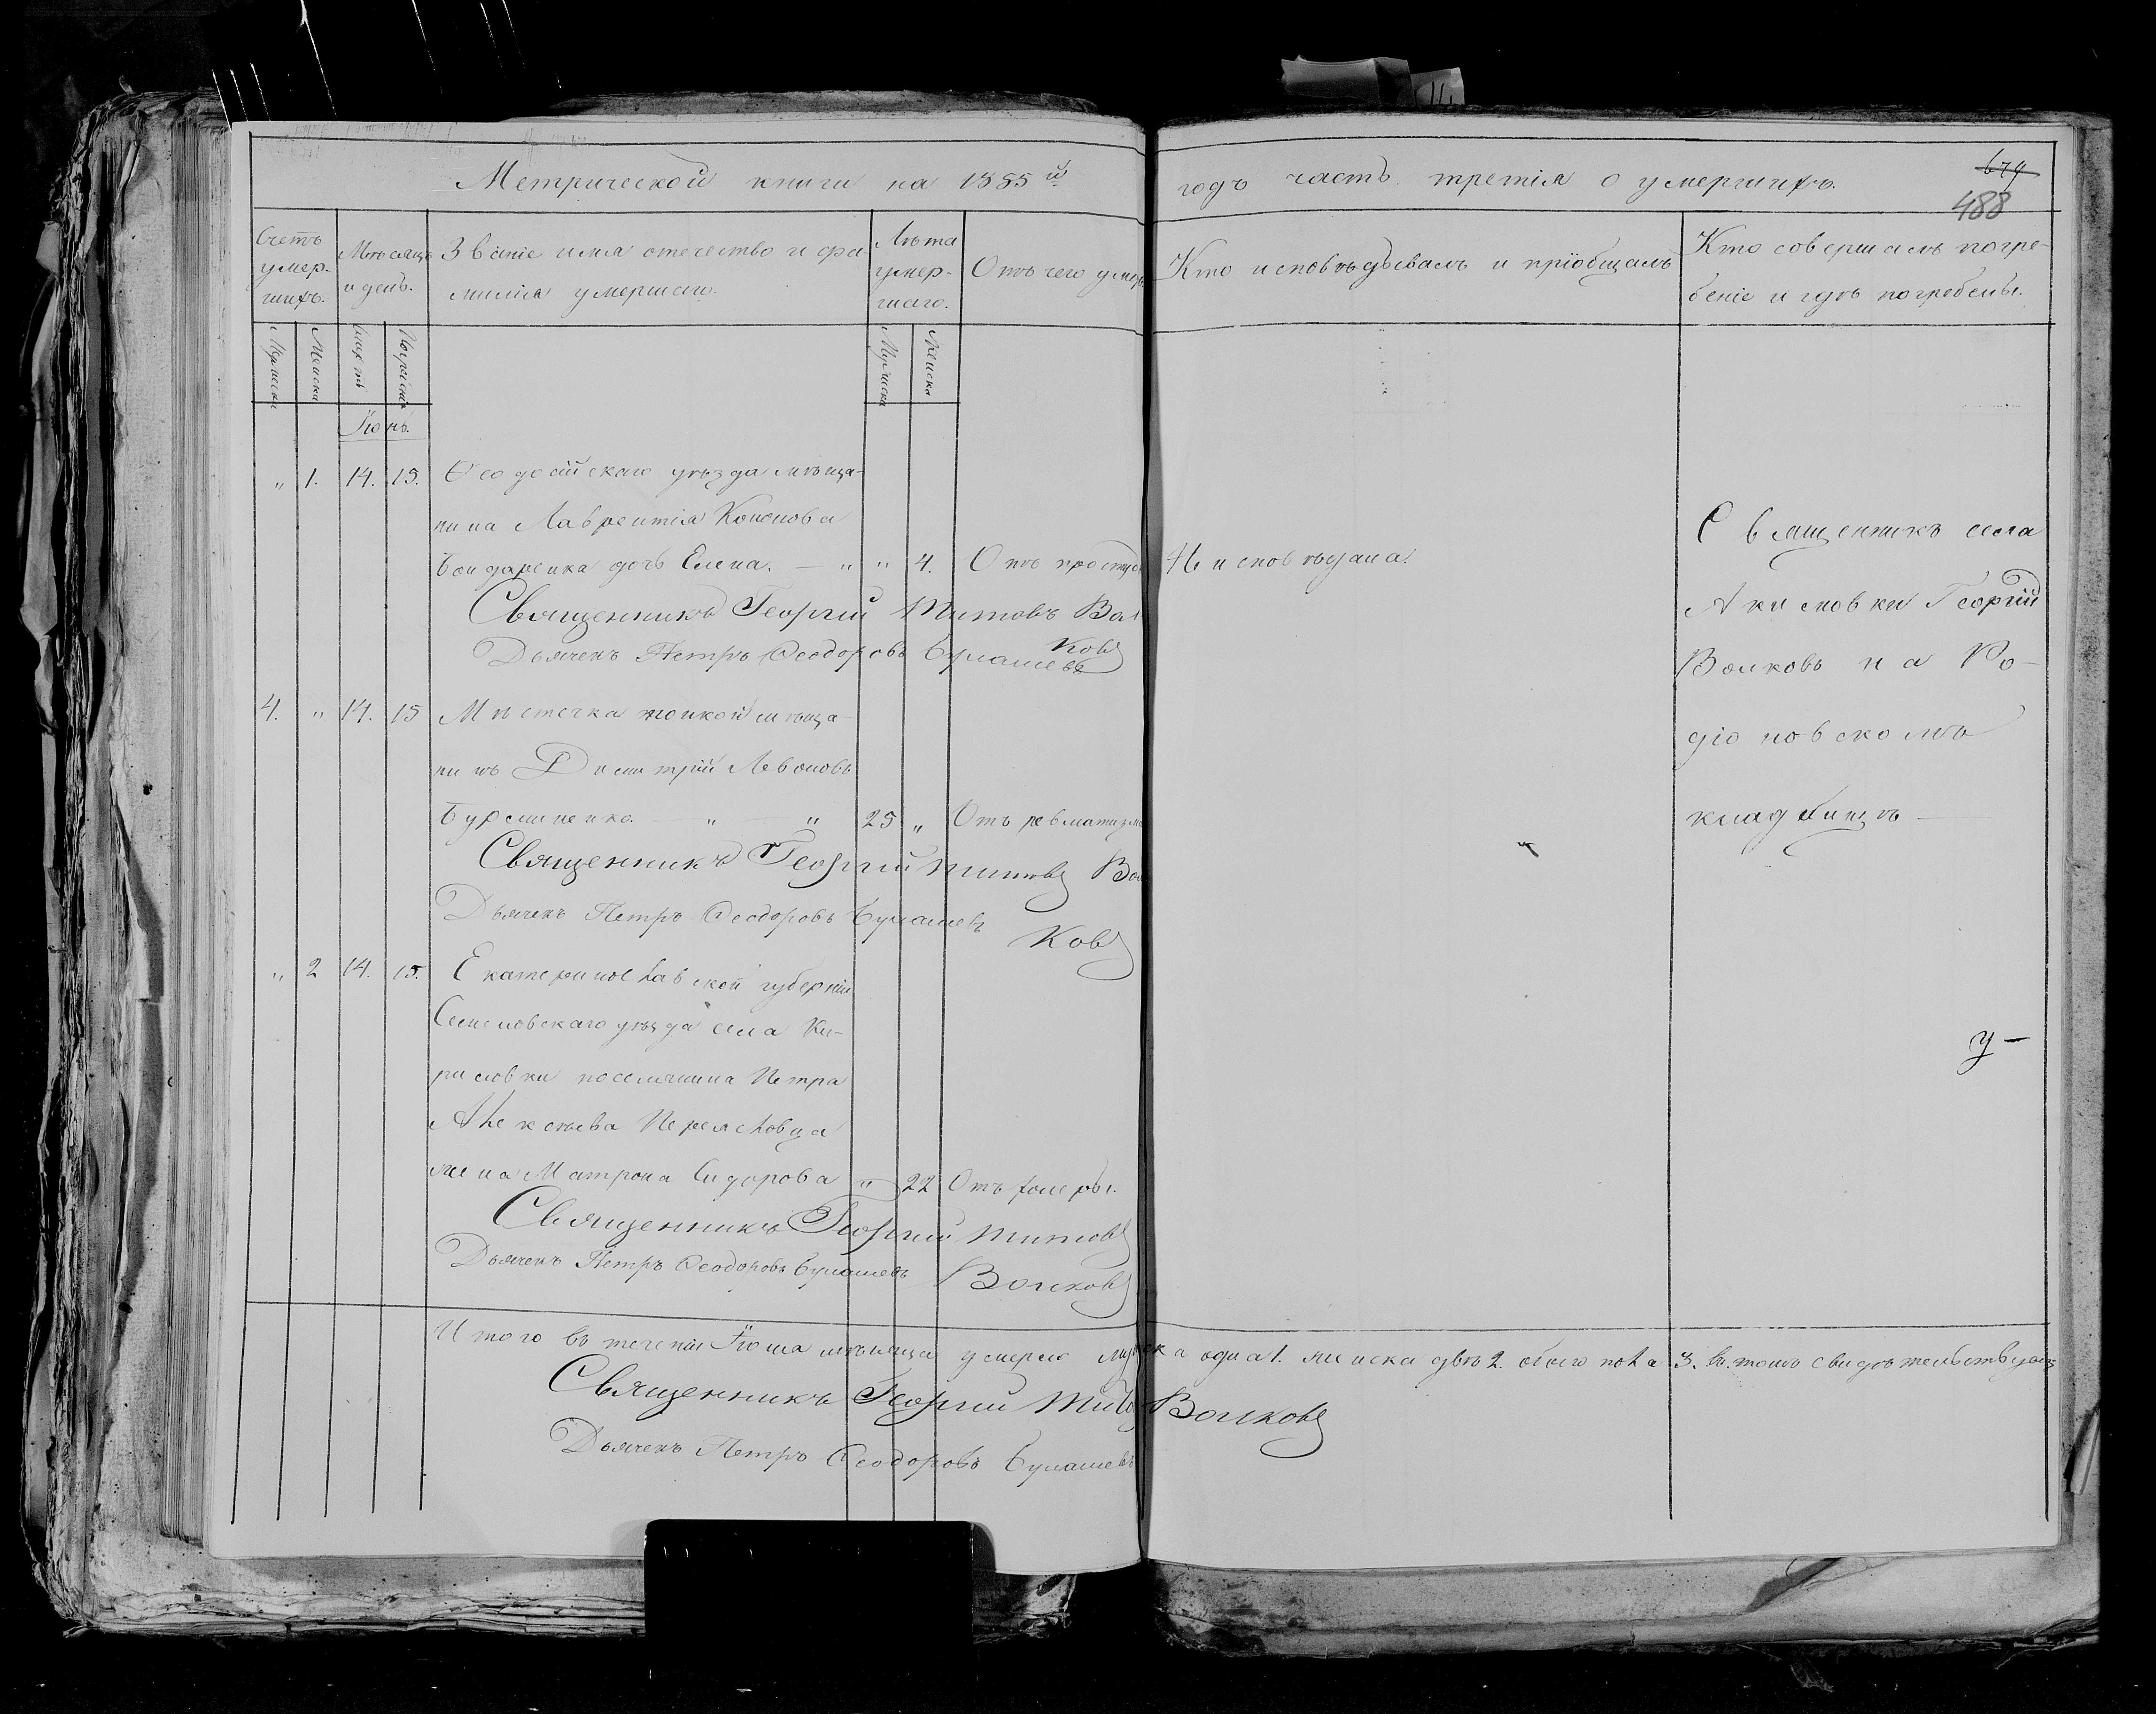 Метрической книги на 1855й годъ часть третія о умершихъ.
674
488
Счетъ умер-шихъ.
Мѣсяцъ и день.
Званіе имя отечество и фа-
милія умершаго.
Лѣта умер-шаго.
Отъ чего умеръ
Кто исповѣдывалъ и пріобщалъ
Кто совершалъ погре-
беніе и гдѣ погребены.
Мужеска
Женска
Смерть
Мужеска
Женска
Іюнь.
" 1. 14. 15. Ѳеодосійскаго уѣзда мѣща-
нина Лаврентія Кононова
Бондаренка дочь Елена. — " " 4. Отъ простуды Не исповѣдана.
Священникъ Георгій Титовъ Вол
ковъ
Дьячекъ Петръ Ѳеодоровъ Булашевъ
4. " 14. 15 Мѣстечка мѣща-
нинъ Димитрій Левоновъ
" " 25 " Отъ ревматизма
Священникъ Георгій Титовъ Вол
Дьячекъ Петръ Ѳеодоровъ Булашевъ
ковъ
" 2 14. 15. Екатеринославской губерніи
уѣзда села Ки-
риловки поселянина Петра
Алексѣева Переяславца
жена Матрона Сидорова " 22 Отъ холеры.
Священникъ Георгій Титовъ
Дьячекъ Петръ Ѳеодоровъ Булашевъ Волковъ
Священникъ села
Акимовки Георгій
Волковъ на Ро-
діоновскомъ
кладбищѣ
у —
Итого въ теченіи Іюня мѣсяца умерло мужеска одна 1. женска двѣ 2. обоего пола 3. въ томъ свидѣтельствуемъ
Священникъ Георгій Титовъ Волковъ
Дьячекъ Петръ Ѳеодоровъ Булашевъ